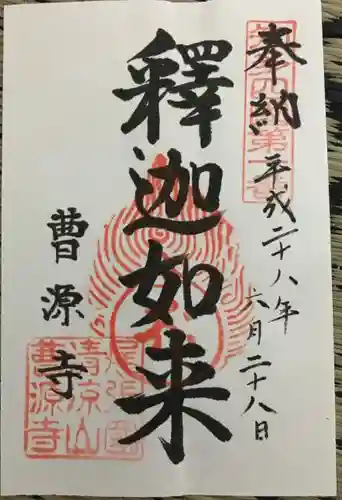 奉納
平成二十八年
六月二十八日
釋迦如来
曹源寺
尾張国
清涼山
曹源寺